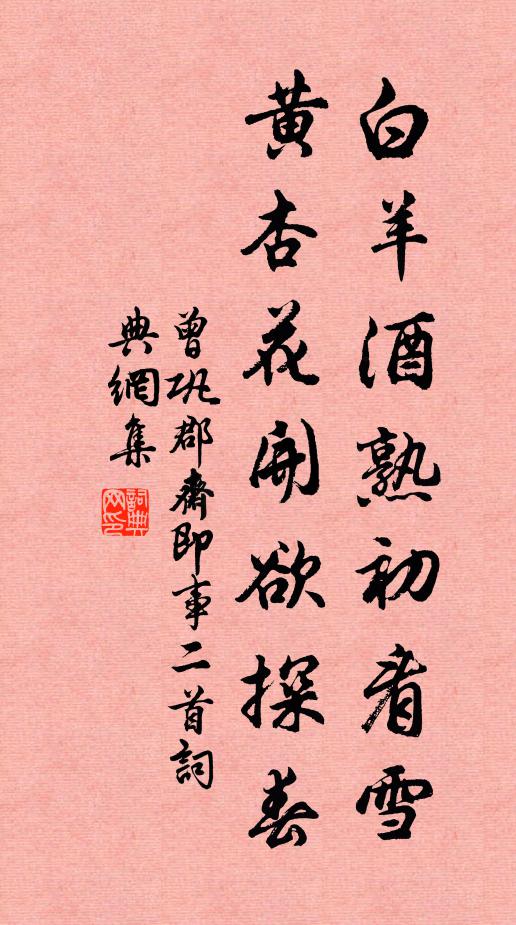 白羊酒熟初看雪
黄杏花開欲探春
曾巩郡齋即事二首詞
典網集
詞典
网印